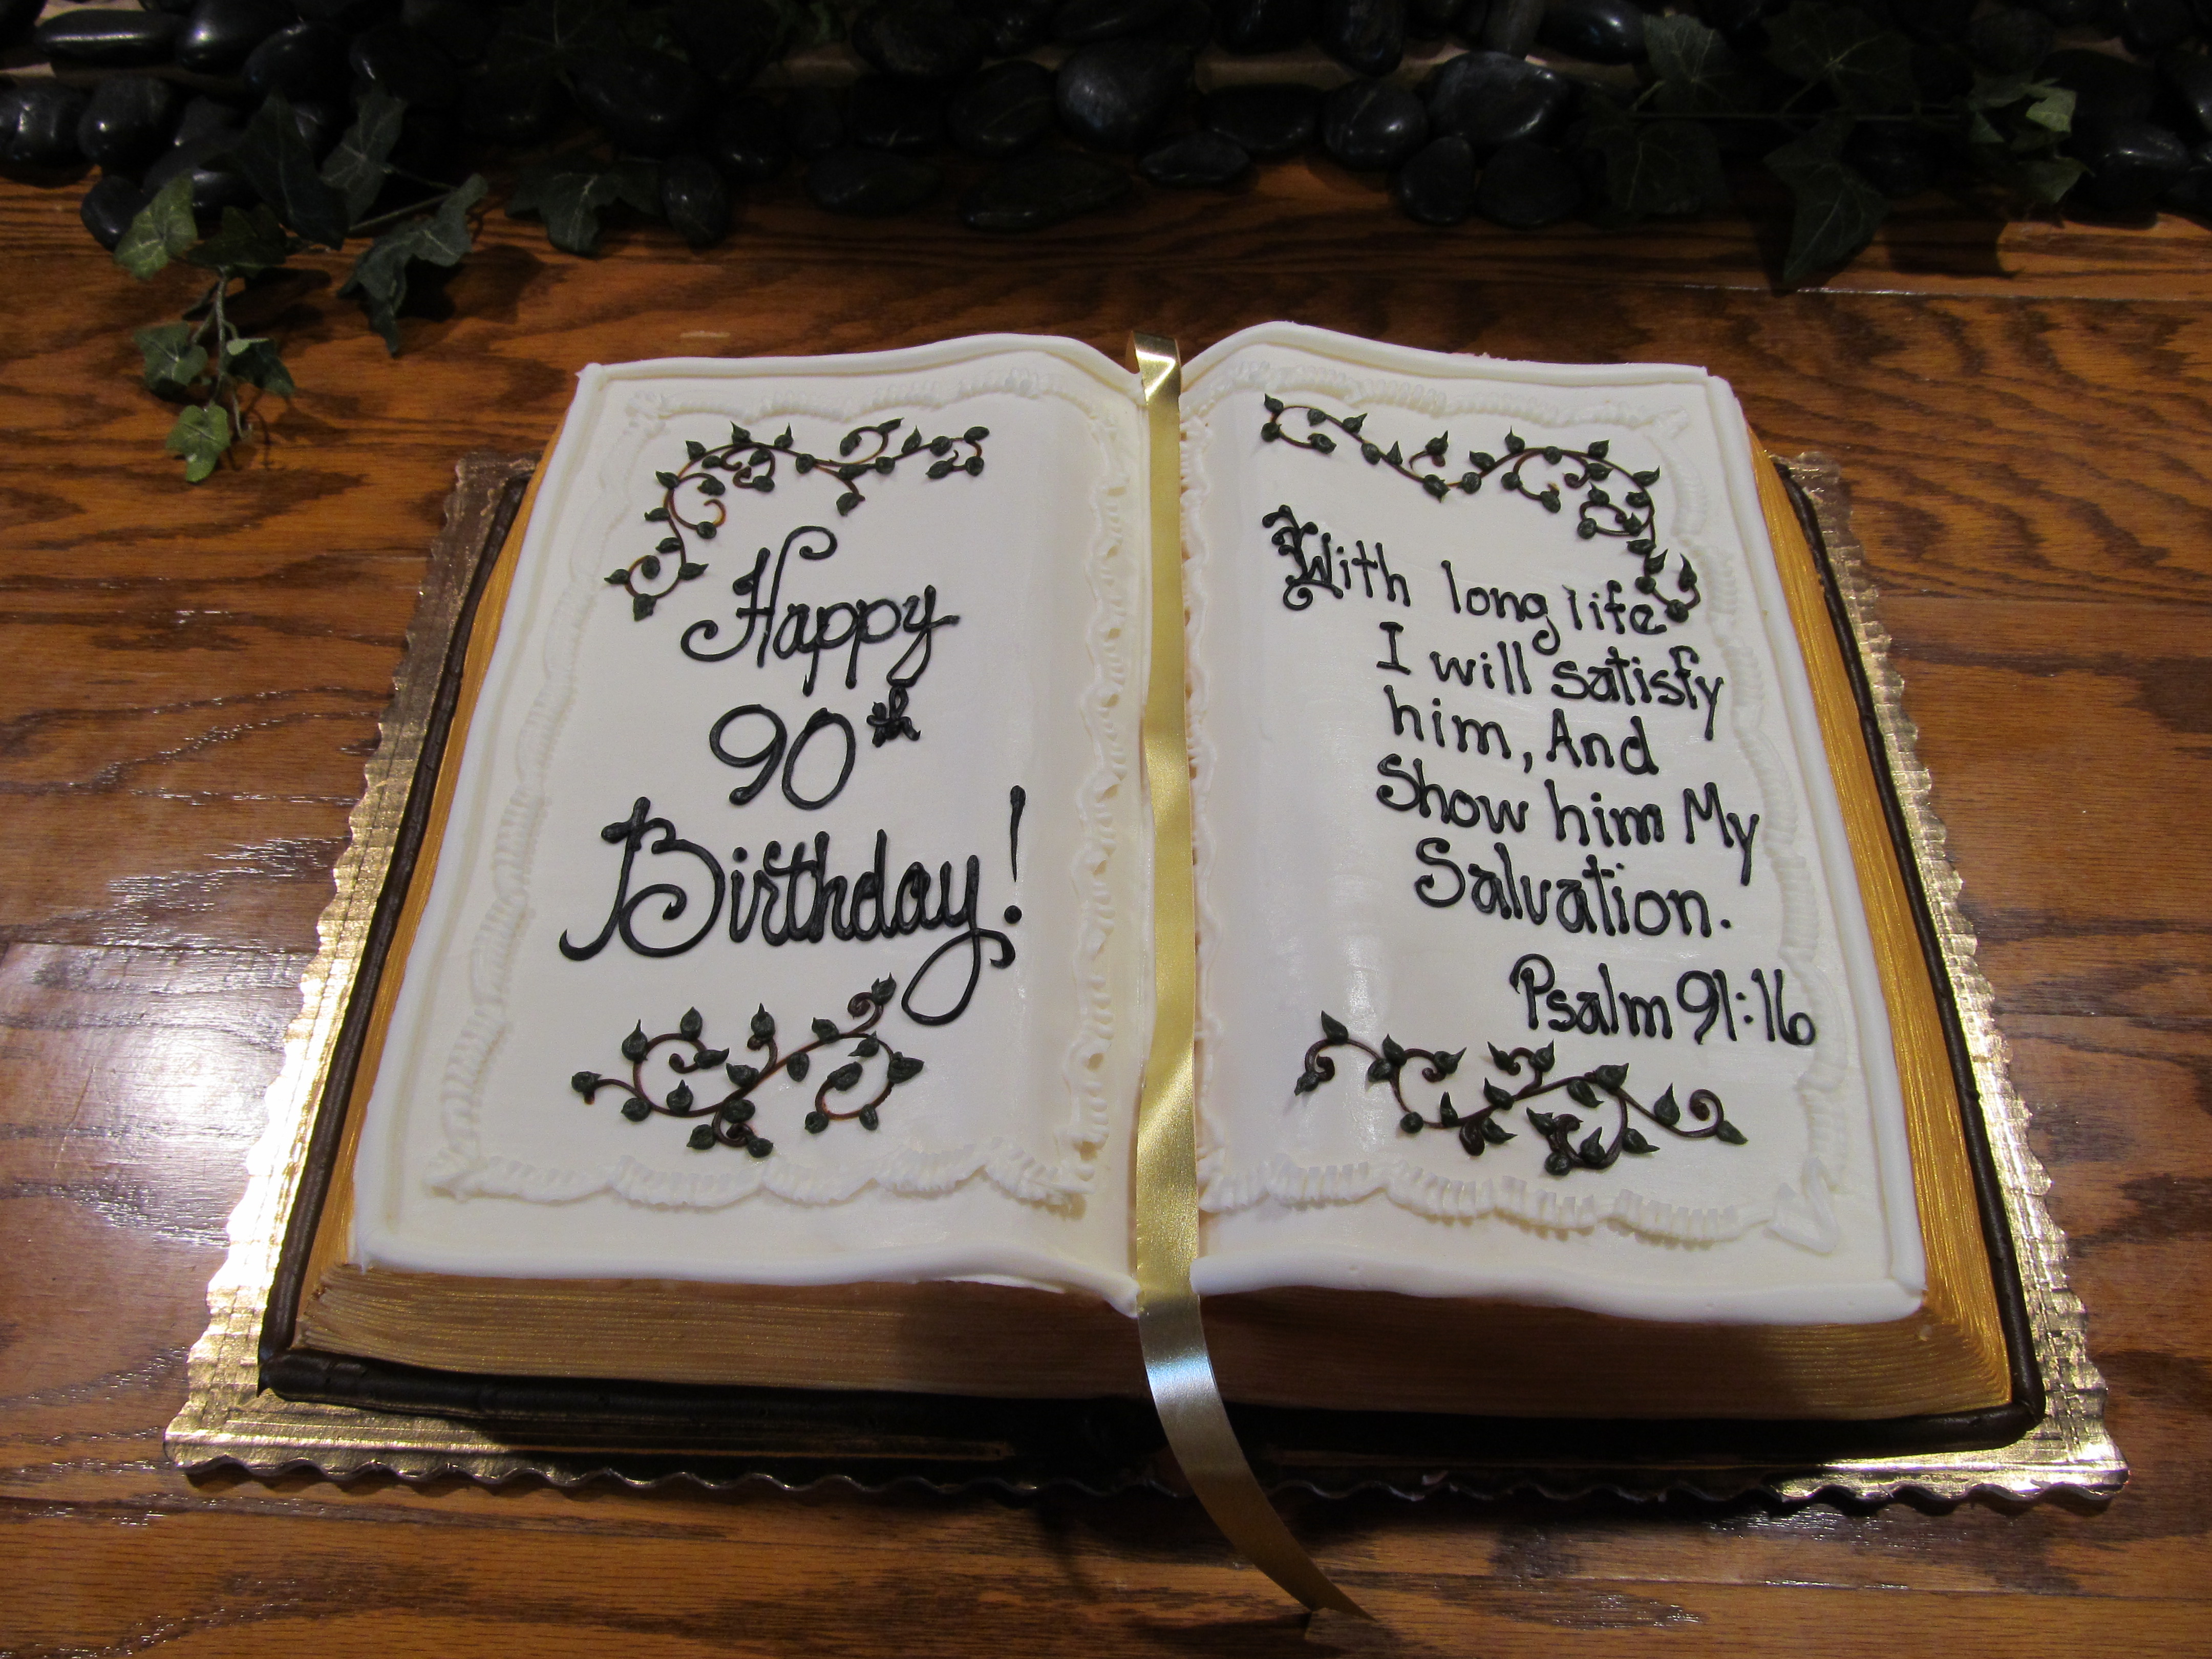 Happy
90th
Birthday!
With long life
I will satisfy
him, And
Show him My
Salvation.
Psalm 91:16